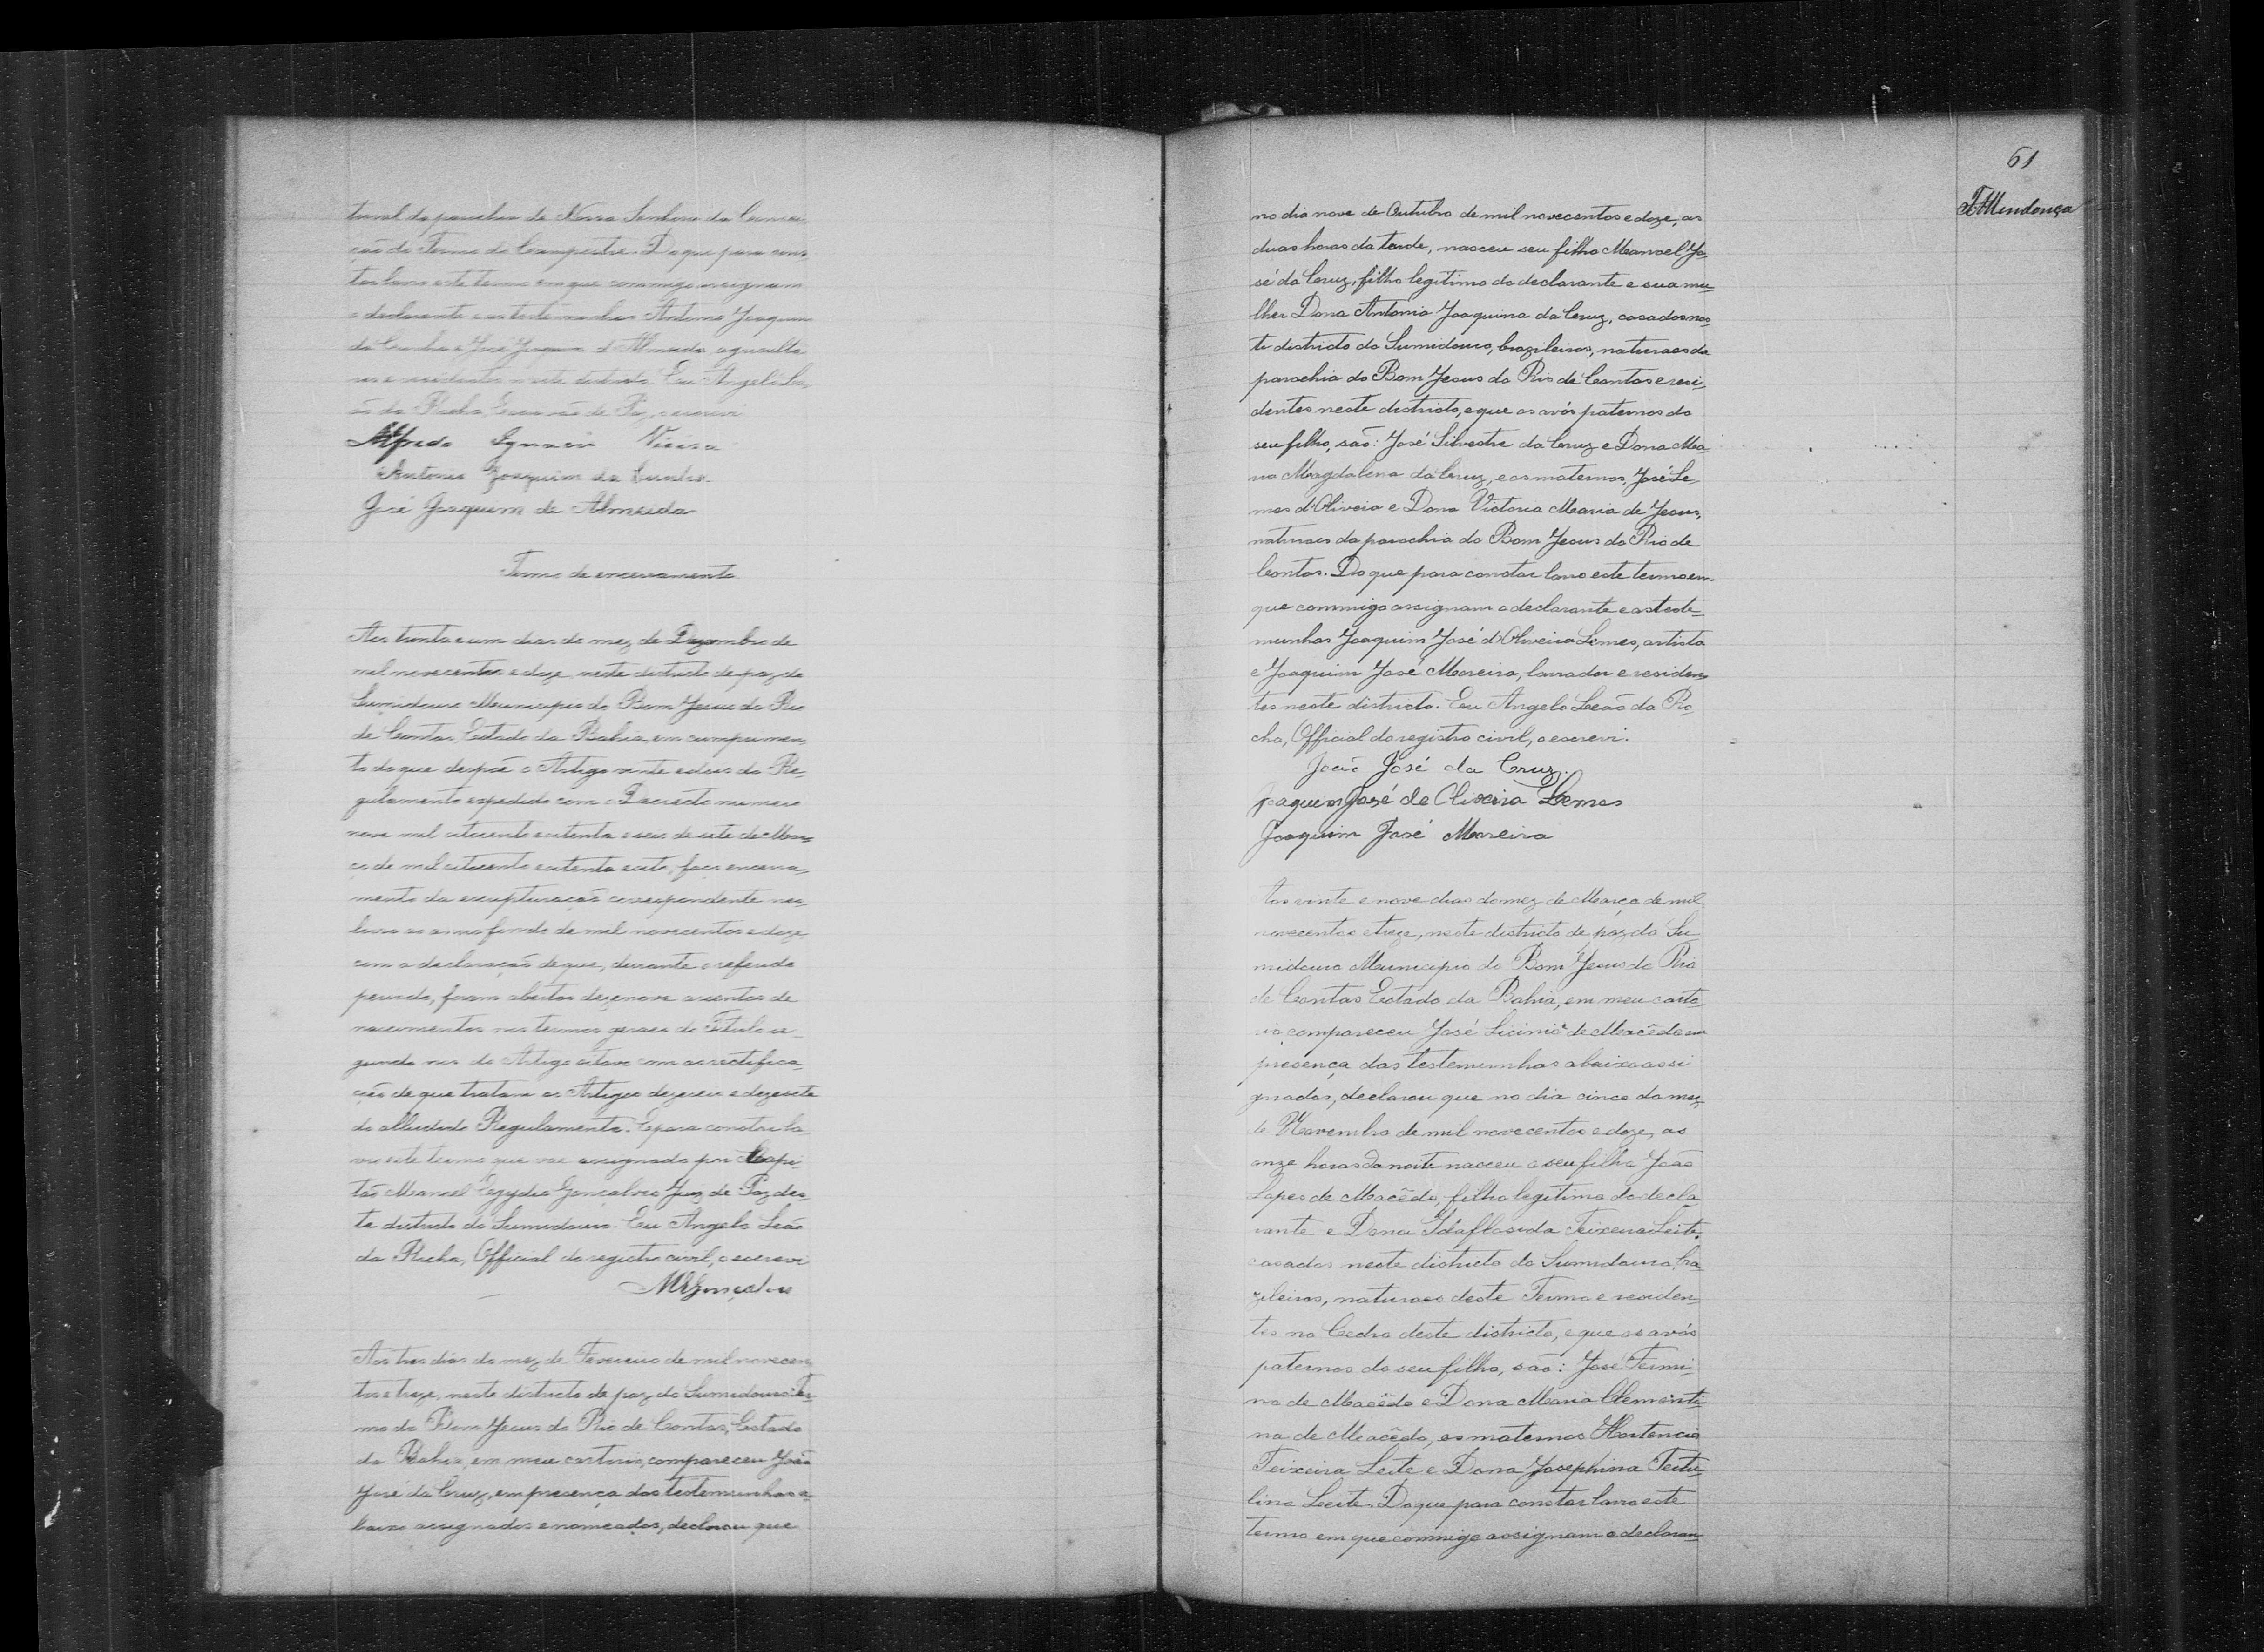 tural da parochia de Nossa Senhora da Concei-
ção do Termo de Campestre. Do que para cons-
tar lavro este termo em que commigo assignam
o declarante e as testemunhas Antonio Joaquim
da Cunha e José Joaquim d'Almeida, agriculto-
res e residentes neste districto. Eu Angelo Le-
ão da Rocha, Escrivão de Paz, o escrevi
Alfredo Ignacio Vieira
Antonio Joaquim da Cunha
José Joaquim de Almeida
Termo de encerramento
Aos trinta e um dias do mez de Dezembro de
mil novecentos e doze, neste districto de paz do
Sumidouro Municipio do Bom Jesus do Rio
de Contas, Estado da Bahia, em cumprimen-
to do que despõe o Artigo vinte e dous do Re-
gulamento expedido com o Decreto numero
nove mil oitocento e oitenta e seis de sete de Mar-
ço de mil oitocento e oitenta e oito, faço encerra-
mento da escripturação correspondente nes-
livro ao anno findo de mil novecentos e doze
com a declaração de que, durante o referido
periodo, foram abertos dezenove assentos de
nascimentos nos termos geraes do Titulo se-
gundo nos do Artigo oitavo com as rectifica-
ções de que tratam os Artigos dezeseis e dezesete
do alludido Regulamento. E para constar la-
vro este termo que vae assignado por Capi-
tão Manoel Egydio Gonçalves Juiz de Paz des-
te districto do Sumidouro. Eu Angelo Leão
da Rocha, Official do registro civil, o escrevi
MEGonçalves
Aos tres dias do mez de Fevereiro de mil novecen-
tos e treze, neste districto de paz do Sumidouro Ter-
mo do Bom Jesus do Rio de Contas, Estado
da Bahia, em meu cartorio, compareceu João
José da Cruz, em presença das testemunhas a-
baixo assignados e nomeados, declarou que
61
Mendonça
no dia nove de Outubro de mil novecentos e doze, as
duas horas da tarde, nasceu seu filho Manoel Jo-
sé da Cruz, filho legitimo do declarante e sua mu-
lher Dona Antonia Joaquina da Cruz, casados nes-
te districto do Sumidouro, brazileiros, naturaes da
parochia do Bom Jesus do Rio de Contas e resi-
dentes neste districto, e que os avós paternos do
seu filho, são: José Silvestre da Cruz e Dona Ma-
na Magdalena da Cruz, e os maternos, José Le-
mos d'Oliveia e Dona Victoria Maria de Jesus,
naturaes da parochia do Bom Jesus do Rio de
Contas. Do que para constar lavro este termo em
que commigo assignam o declarante e as teste-
munhas Joaquim José d'Oliveira Lemos, artista
e Joaquim José Moreira, lavrador e residen-
tes neste districto. Eu Angelo Leão da Ro-
cha, Official do registro civil, o escrevi.
João José da Cruz.
Joaquim José de Oliveira Lemos
Joaquim José Moreira
Aos vinte e nove dias do mez de Março de mil
novecentos e treze, neste districto de paz do Su-
midouro Municipio do Bom Jesus do Rio
de Contas Estado da Bahia, em meu carto-
rio, compareceu José Licinio de Macêdo em
presença das testemunhas abaixo assi
gnados, declarou que no dia cinco do mez
de Novembro de mil novecentos e doze, as
onze horas da noite nasceu o seu filho João
Lopes de Macêdo, filho legitimo do decla-
rante e Dona Idaflosida Teixeira Leite,
casados neste districto do Sumidouro, bra-
zileiros, naturaes deste Termo e residen-
tes no Cedro deste districto, e que os avós
paternos do seu filho, são: José Firmi-
no de Macêdo e Dona Maria Clementi-
na de Macêdo, os maternos Hortencio
Teixeira Leite e Dona Josephina Teitu-
lina Leite. Do que para constar lavro este
termo em que commigo assignam o declaran-